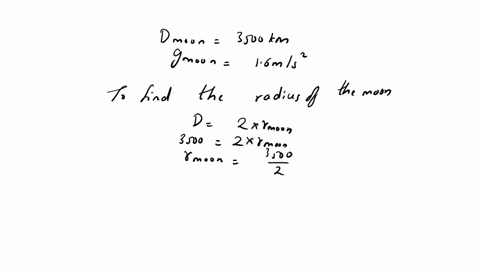 D moon = 3500 km
g moon = 1.6 m/s²
To find the radius of the moon
D = 2 × r moon
3500 = 2 × r moon
r moon = 3500/2